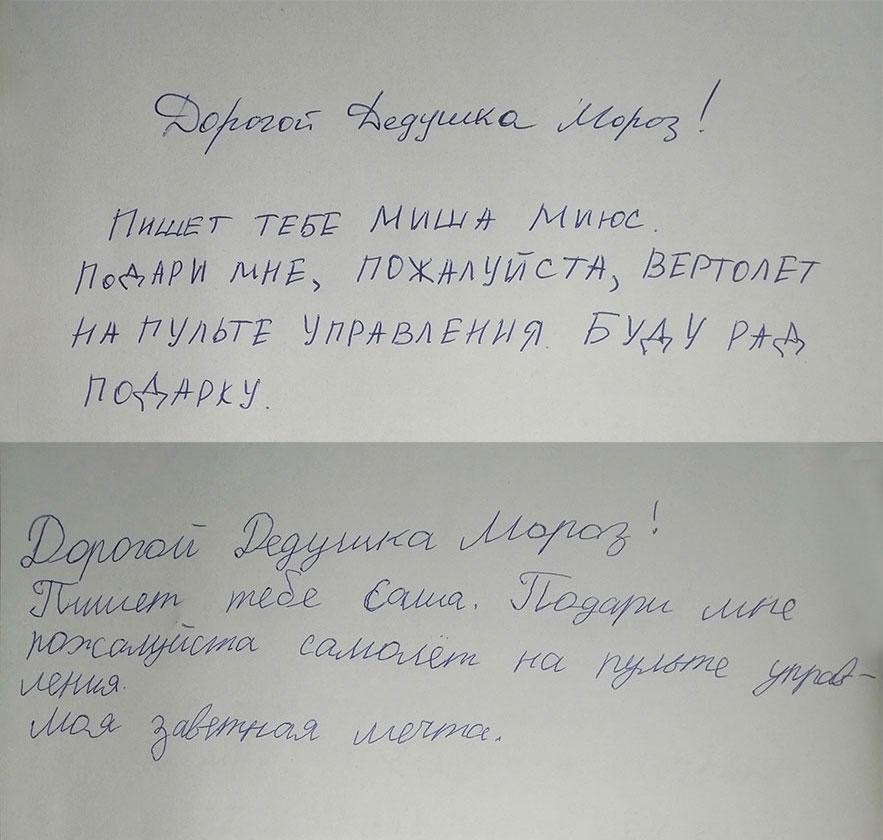 Дорогой Дедушка Мороз!
Пишет тебе Миша Миюс.
Подари мне, пожалуйста, вертолет
на пульте управления. Буду рад
подарку.
Дорогой Дедушка Мороз!
Пишет тебе Саша. Подари мне
пожалуйста самолёт на пульте управ-
ления.
Моя заветная мечта.